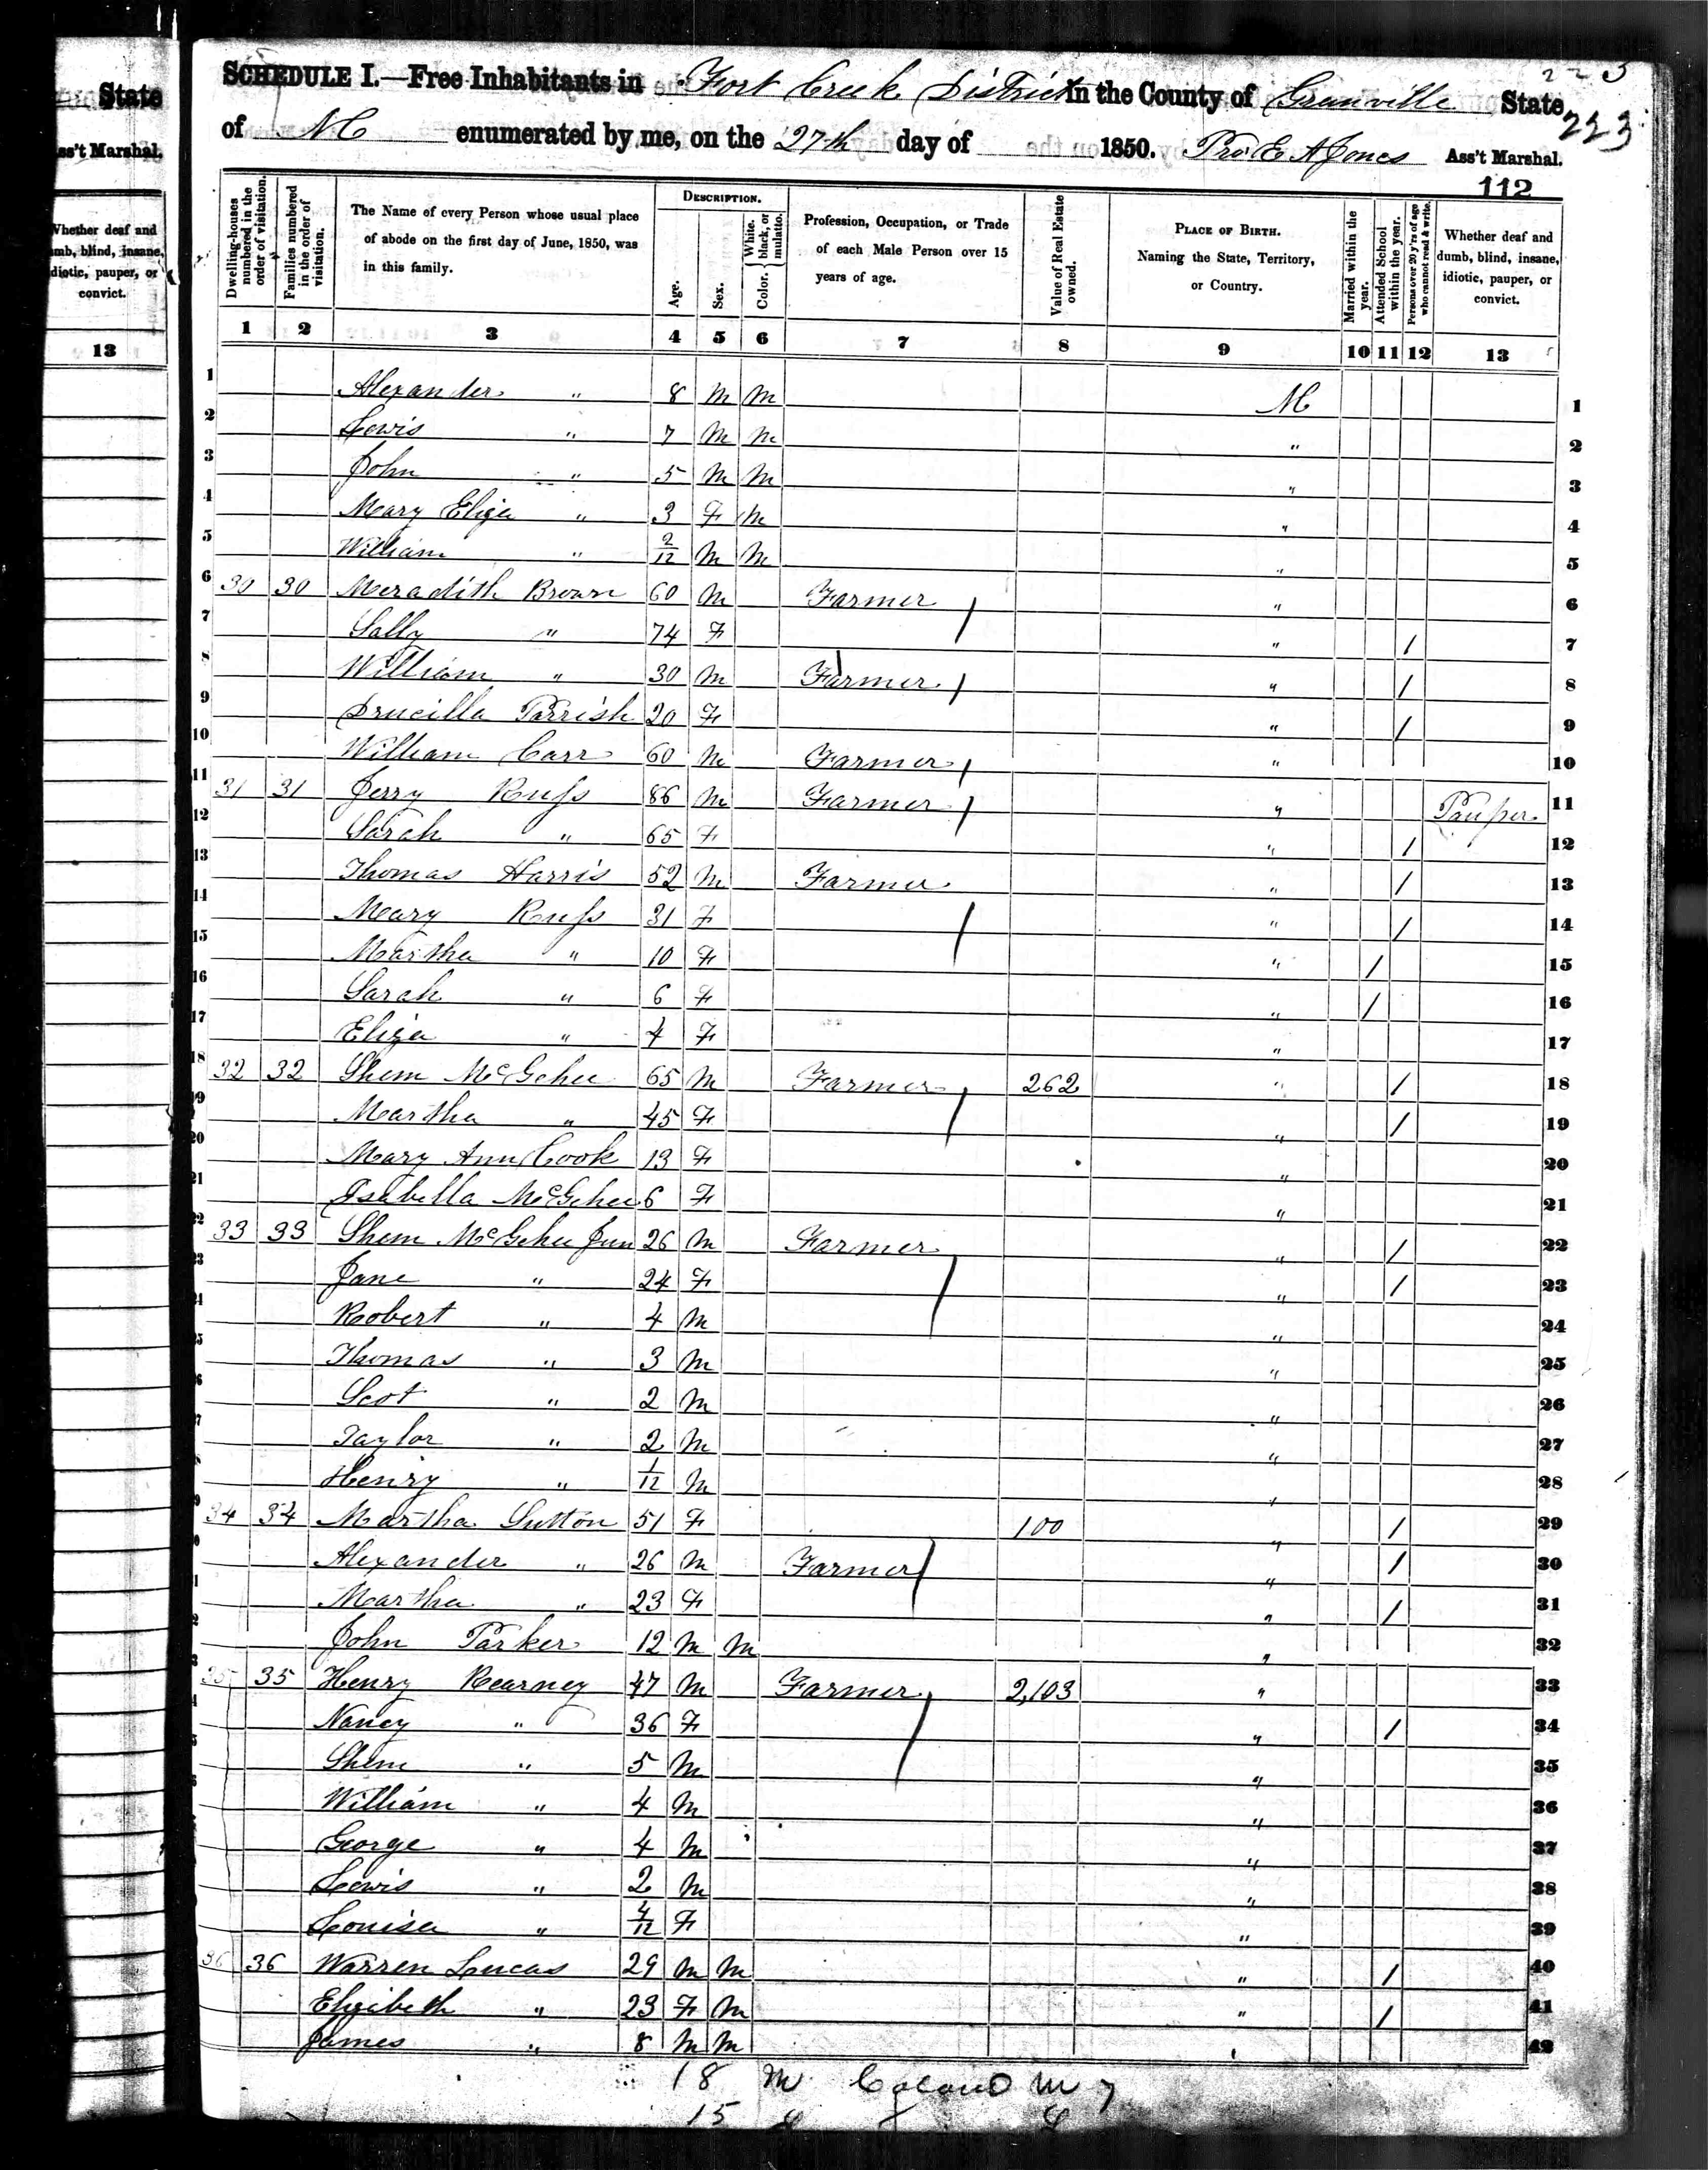 State
ss't Marshal.
Whether deaf and
mb, blind, insane,
diotic, pauper, or
convict.
13
SCHEDULE I.—Free Inhabitants in Fort Creek District in the County of Granville State
of NC enumerated by me, on the 27th day of 1850. E A Jones Ass't Marshal.
223
112
Dwelling-houses numbered in the order of visitation.
Families numbered in the order of visitation.
The Name of every Person whose usual place of abode on the first day of June, 1850, was in this family.
DESCRIPTION.
Age.
Sex.
Color. White, black, or mulatto.
Profession, Occupation, or Trade of each Male Person over 15 years of age.
Value of Real Estate owned.
PLACE OF BIRTH. Naming the State, Territory, or Country.
Married within the year.
Attended School within the year.
Persons over 20 y'rs of age who cannot read & write.
Whether deaf and dumb, blind, insane, idiotic, pauper, or convict.
1 2 3 4 5 6 7 8 9 10 11 12 13
1 Alexander " 8 M M NC 1
2 Lewis " 7 M M " 2
3 John " 5 M M " 3
4 Mary Eliza " 3 F M " 4
5 William " 2/12 M M " 5
6 30 30 Meradith Brown 60 M Farmer " 6
7 Sally " 74 F " / 7
8 William " 30 M Farmer " / 8
9 Drucilla Parrish 20 F " / 9
10 William Carr 60 M Farmer " 10
11 31 31 Jerry Russ 86 M Farmer " Pauper 11
12 Sarah " 65 F " / 12
13 Thomas Harris 52 M Farmer " / 13
14 Mary Russ 31 F " / 14
15 Martha " 10 F " / 15
16 Sarah " 6 F " / 16
17 Eliza " 4 F " 17
18 32 32 Shem McGehee 65 M Farmer 262 " / 18
19 Martha " 45 F " / 19
20 Mary Ann Cook 13 F " 20
21 Isabella McGehee 6 F " 21
22 33 33 Shem McGehee Jun 26 M Farmer " / 22
23 Jane " 24 F " / 23
24 Robert " 4 M " 24
25 Thomas " 3 M " 25
26 Scot " 2 M " 26
27 Taylor " 2 M " 27
28 Henry " 1/12 M " 28
29 34 34 Martha Sutton 51 F 100 " / 29
30 Alexander " 26 M Farmer " / 30
31 Martha " 23 F " / 31
32 John Parker 12 M M " 32
33 35 35 Henry Kearney 47 M Farmer 2,103 " 33
34 Nancy " 36 F " / 34
35 Shem " 5 M " 35
36 William " 4 M " 36
37 George " 4 M " 37
38 Lewis " 2 M " 38
39 Louisa " 4/12 F " 39
40 36 36 Warren Lucas 29 M M " / 40
41 Elizibeth " 23 F M " / 41
42 James " 8 M M " 42
18 M M 7
15